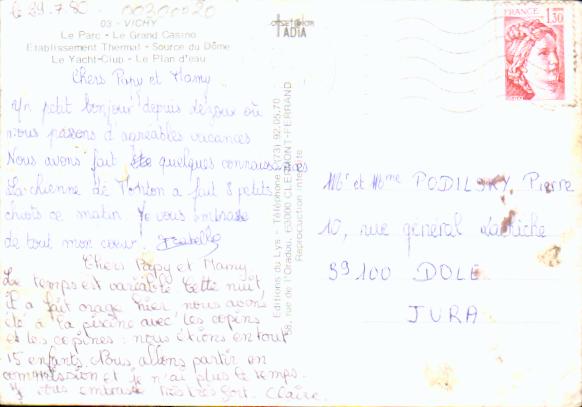 Le 29.7.80
00300020
03 - VICHY
Le Parc - Le Grand Casino
Etablissement Thermal - Source du Dôme
Le Yacht-Club - Le Plan d'eau
TADIA
FRANCE 1,30
Chers Papy et Mamy
Un petit bonjour depuis où
nous passons d'agréables vacances
Nous avons fait quelques connaissances
La chienne de a fait 8 petits
chiots ce matin Je vous embrasse
de tout mon cœur. Isabelle
Chers Papy et Mamy
Le temps est variable Cette nuit,
il a fait orage hier nous avons
été à la piscine avec les copains
et les copines : nous étions en tout
15 enfants. Nous allons partir en
commission et je n'ai plus le temps.
Je vous embrasse très très fort. Claire.
Editions du Lys - Téléphone (73) 92.05.70
38, rue de l'Oradou, 63000 CLERMONT-FERRAND
Reproduction interdite
Mr et Mme PODILSKY Pierre
10, rue général Lachiche
39100 DOLE
JURA